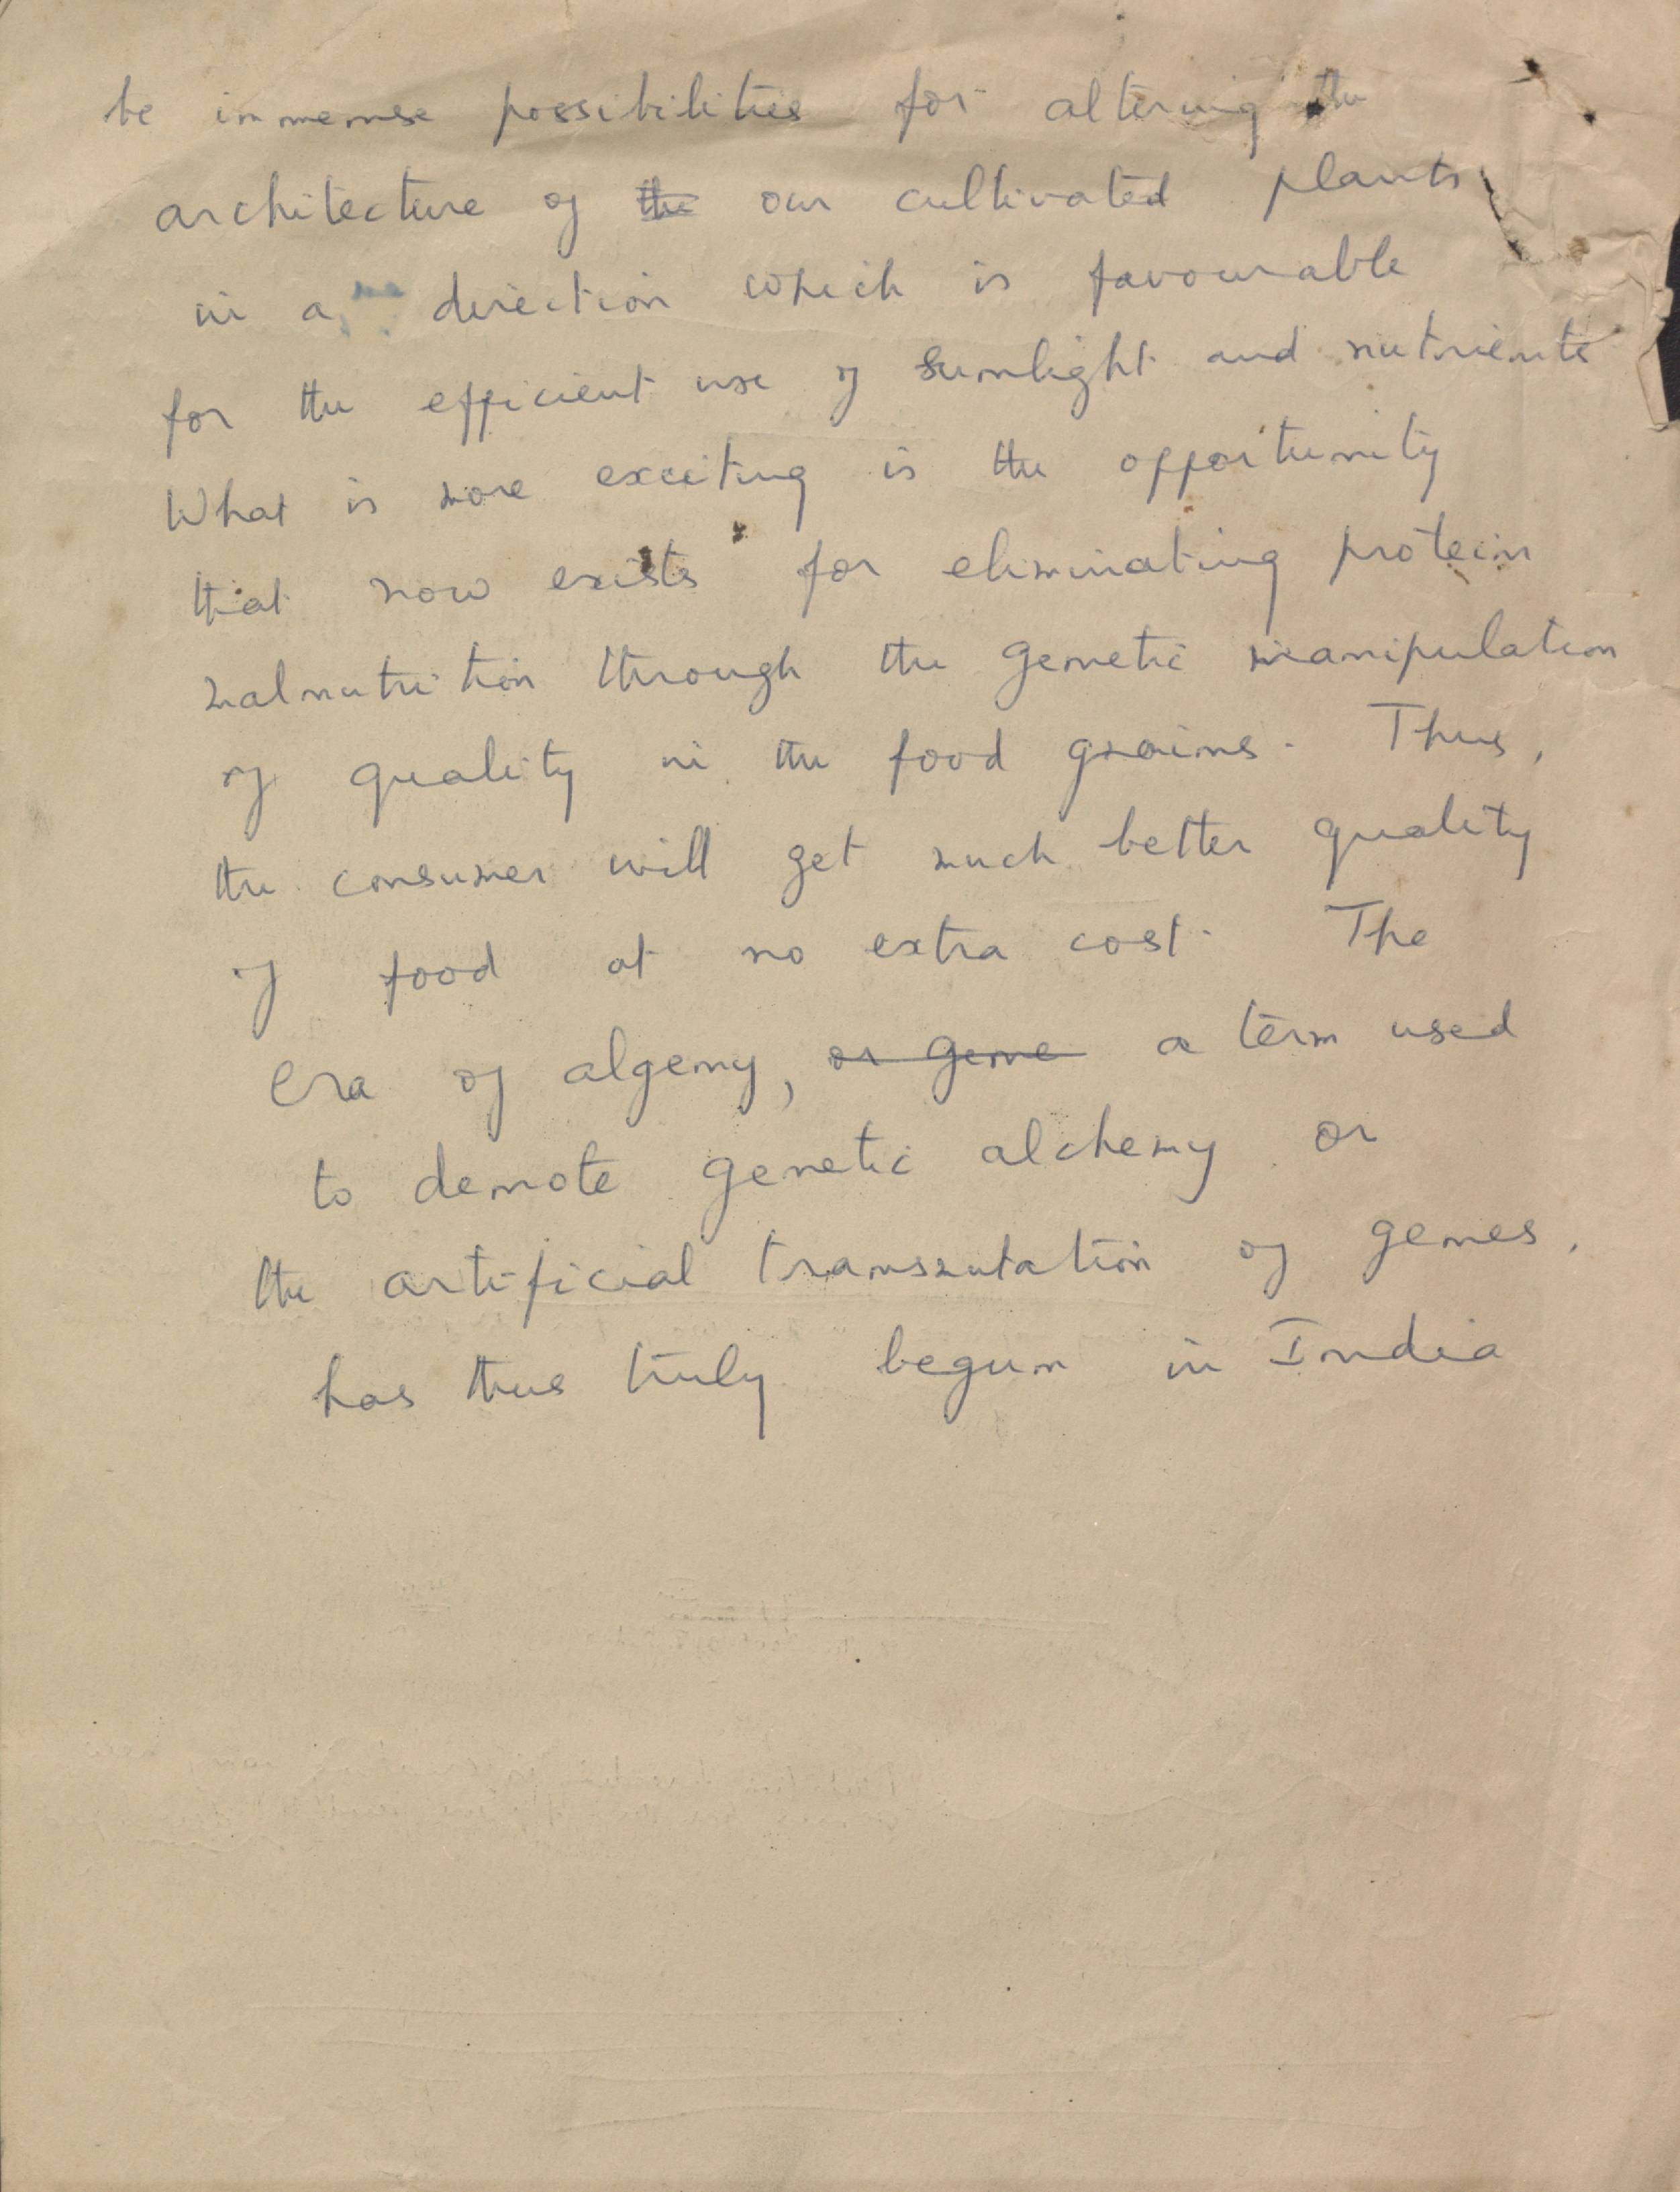 be immense possibilities for altering the
architecture of the our cultivated plants
in a direction which is favourable
for the efficient use of sunlight and nutrients
What is more exciting is the opportunity
that now exists for eliminating protein
malnutrition through the genetic manipulation
of quality in the food grains. Thus,
the consumer will get much better quality
of food at no extra cost. The
era of algemy, or gene a term used
to denote genetic alchemy or
the artificial transmutation of genes,
has thus truly begun in India